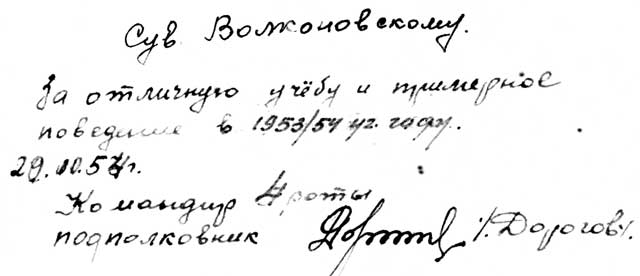 Сув Волконовскому.
За отличную учёбу и примерное
поведение в 1953/54 уч. году.
29.10.54г.
Командир 4 роты
подполковник /Дорогов/.